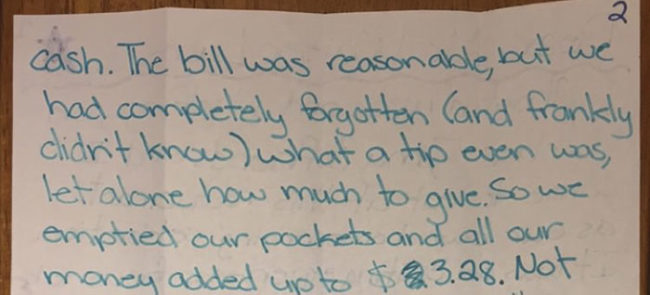 2
cash. The bill was reasonable, but we
had completely forgotten (and frankly
didn't know) what a tip even was,
let alone how much to give. So we
emptied our pockets and all our
money added up to $3.28. Not